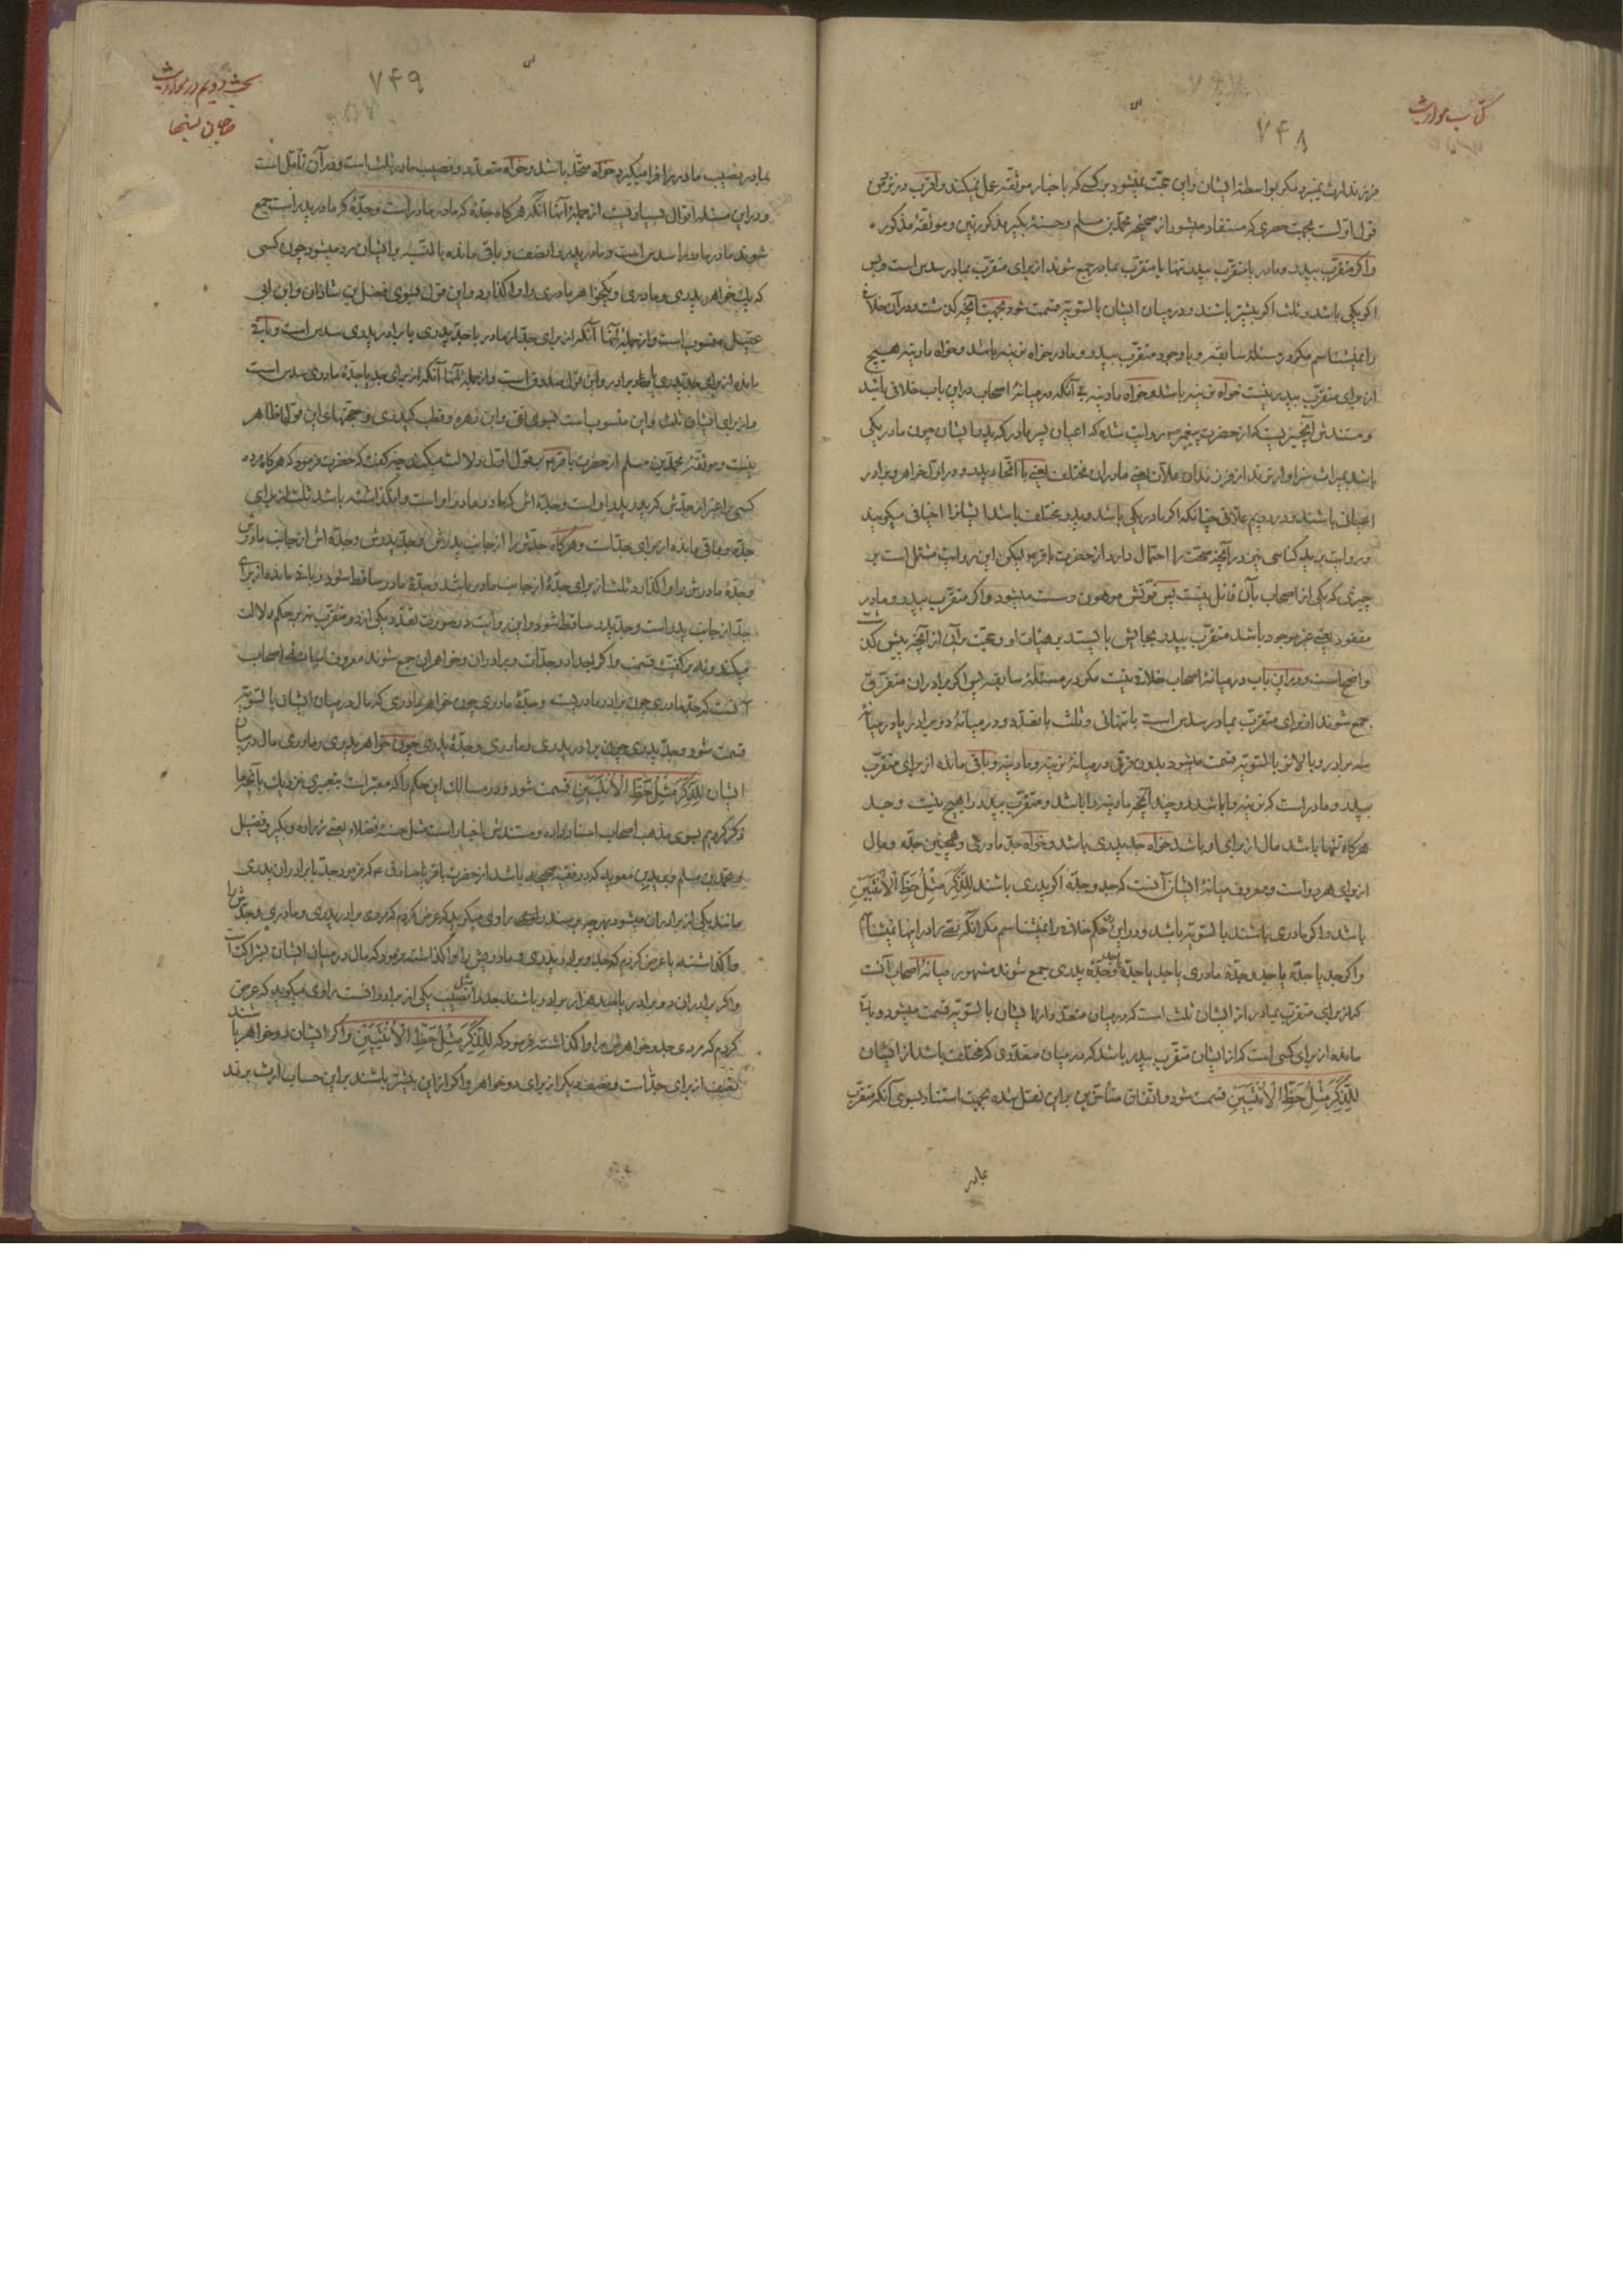 کتاب مواریث
۷۴۸
فرزند ارث نمیبرد مگر بواسطه ایشان و این حجت نمیشود بر کسی که باخبار موثقه عمل نمیکند و اقرب در نزد من
قول اولست بجهت حصری که مستفاد میشود از صحیحه محمد بن مسلم و حسنه بکیر مذکورتین و موثقه مذکوره
واکر متقرّب بپدر و مادر یا متقرّب بپدر تنها با متقرّب بمادر جمع شوند از برای متقرّب بمادر سدس است و بس
اکر یکی باشد و ثلث اکر بیشتر باشند و در میان ایشان بالسّویّه قسمت شود بجهت آنچه کذشت و در آن خلاف
را نمیشناسم مکر در مسئله سابقه و با وجود متقرّب بپدر و مادر خواه نرینه باشد و خواه مادینه هیچ
از برای متقرّب بپدر نیست خواه نرینه باشد و خواه مادینه بی آنکه در میانهٔ اصحاب در این باب خلافی باشد
و مستندش آنچیزیست که از حضرت پیغمبر ص روایت شده که اعیان پسر مادر که پدر ایشان چون مادر یکی
باشد بمیراث سزاوارترند از فرزندان علات یعنی مادران مختلف یعنی با اتحاد پدر و در اول خواهر و برادر
اعیانی باشند و در دویم علاتی چنانکه اکر مادر یکی باشد و پدر مختلف باشد ایشانرا اخیافی میکویند
و روایت یزید کناسی نیز در آنچه صحت را احتمال دارد از حضرت باقر ع لیکن این روایت مشتمل است بر
چیزی که یکی از اصحاب بآن قائل نیست پس قوّتش موهون و سست میشود واکر متقرّب بپدر و مادر
مفقود یعنی غیر موجود باشد متقرّب بپدر بجایش بایستد بر هیئات او و حجت بر آن از آنچه پیش کذشت
واضح است و در این باب در میانهٔ اصحاب خلافی نیست مکر در مسئلهٔ سابقه پس اکر برادران متفرّق
جمع شوند از برای متقرّب بمادر سدس است با تنهائی و ثلث با تعدّد و در میانهٔ دو برادر یا در میانهٔ
سه برادر و بالاتر بالسّویّه قسمت میشود بدون فرقی در میانهٔ نرینه و مادینه و باقی مانده از برای متقرّب
بپدر و مادر است که نرینه را باشد دو چند آنچه مادینه را باشد و متقرّب بپدر را هیچ نیست و جد
هرکاه تنها باشد مال از برای او باشد خواه جد پدری باشد و خواه جد مادری و همچنین جدّه و مال
از برای هر دو است و معروف میانهٔ ایشان آنست که جد و جدّه اکر پدری باشند لِلذَّکَرِ مِثْلُ حَظِّ الْاُنْثَیَیْنِ
باشد و اکر مادری باشند بالسّویّه باشد و در این حکم خلافی را نمیشناسم مکر آنکه نصی بر او را نمیشناسم
واکر جد یا جدّه یا جد و جدّه مادری با جد یا جدّه یا جد و جدّه پدری جمع شوند مشهور میانهٔ اصحاب آنست
که از برای متقرّب بمادر از ایشان ثلث است که در میان متعدّد از ایشان بالسّویّه قسمت میشود و باقی
مانده از برای کسی است که از ایشان متقرّب بپدر باشد که در میان متعدّدی که مختلف باشد از ایشان
لِلذَّکَرِ مِثْلُ حَظِّ الْاُنْثَیَیْنِ قسمت شود و اتّفاق متأخّرین بر این نقل شده بجهت استناد بسوی آنکه متقرّب
بمادر
بحث دویم در مواریث
۷۴۹
بمادر نصیب مادر را فرا میکیرد خواه متّحد باشد و خواه متعدّد و نصیب مادر ثلث است و در آن تأمّل است
و در این مسئله اقوال بسیار نیست از جملهٔ آنها آنکه هرکاه جدّهٔ که مادر مادر است و جدّهٔ که مادر پدر است جمع
شوند مادر مادر را سدس است و مادر پدر را نصف و باقی مانده بالنّسبه بر ایشان رد میشود چون کسی
که یک خواهر پدری و مادری و یکخواهر مادری را واکذارد و این قول بسوی فضل بن شاذان و ابن ابی
عقیل منسوب است و از جملهٔ آنها آنکه از برای جد از مادر با جد پدری یا برادر پدری سدس است و باقی
مانده از برای جد پدری یا برادر و این قول صدوق است و از جملهٔ آنها آنکه از برای جد یا جدّهٔ مادری سدس است
و از برای ایشان ثلث و این منسوب است بسوی تقی و ابن زهره و قطب کیدری و حجتهای این قول ظاهر
نیست و موثقهٔ محمد بن مسلم از حضرت باقر ع بقول اول دلالت میکند چه کفت که حضرت فرمود که هرکاه مرده
کسی را غیر از جدّش که پدر پدر او است و جدّه اش که مادر مادر او است وانکذاشته باشد ثلث از برای
جدّه و باقی مانده از برای جدّ است و هرکاه جدّش را از جانب پدرش و جد پدرش و جدّه اش از جانب مادرش
و جدّهٔ مادرش را واکذارد ثلث از برای جدّهٔ از جانب مادر باشد و جدّهٔ مادر ساقط شود و باقی مانده از برای
جد از جانب پدر است و جد پدر ساقط شود و این روایت در صورت تعدّد یکی از دو متقرّب نیز بر حکم دلالت
میکند و نه بر کیفیّت قسمت و اکر اجداد و جدّات و برادران و خواهران جمع شوند معروف میانهٔ اصحاب
آنست که جد مادری چون برادر مادریست و جدّهٔ مادری چون خواهر مادری که مال در میان ایشان بالسّویّه
قسمت شود و جد پدری چون برادر پدری و مادری و جدّهٔ پدری چون خواهر پدری و مادری مال در میان
ایشان لِلذَّکَرِ مِثْلُ حَظِّ الْاُنْثَیَیْنِ قسمت شود و در مسالک این حکم را که معتبر است بتعبیری نزدیک بآنچه ما
ذکر کردیم بسوی مذهب اصحاب اسناد داده و مستندش اخبار است مثل حسنهٔ فضلاء یعنی زراره و بکیر و فضیل
و محمد بن مسلم و برید بن معویه که در فقیه صحیح باشد از حضرت باقر یا صادق ع که فرمود جد با برادران پدری
مانند یکی از برادران میشود بهر چه برسند راوی میکوید که عرض کردم که مردی برادر پدری و مادری و جدش را
واکذاشته یا عرض کردم که جد و برادر پدری و مادریش را واکذاشته فرمود که مال در میان ایشان بشراکت است
واکر برادران دو برادر یا صد هزار برادر باشند جد را مثل نصیب یکی از برادرانست راوی میکوید که عرض
کردم که مردی جد و خواهرش را واکذاشته فرمود که لِلذَّکَرِ مِثْلُ حَظِّ الْاُنْثَیَیْنِ واکر ایشان دو خواهر باشند
نصف از برای جدّ است و نصف دیکر از برای دو خواهر واکر از این بیشتر باشند بر این حساب ارث برند